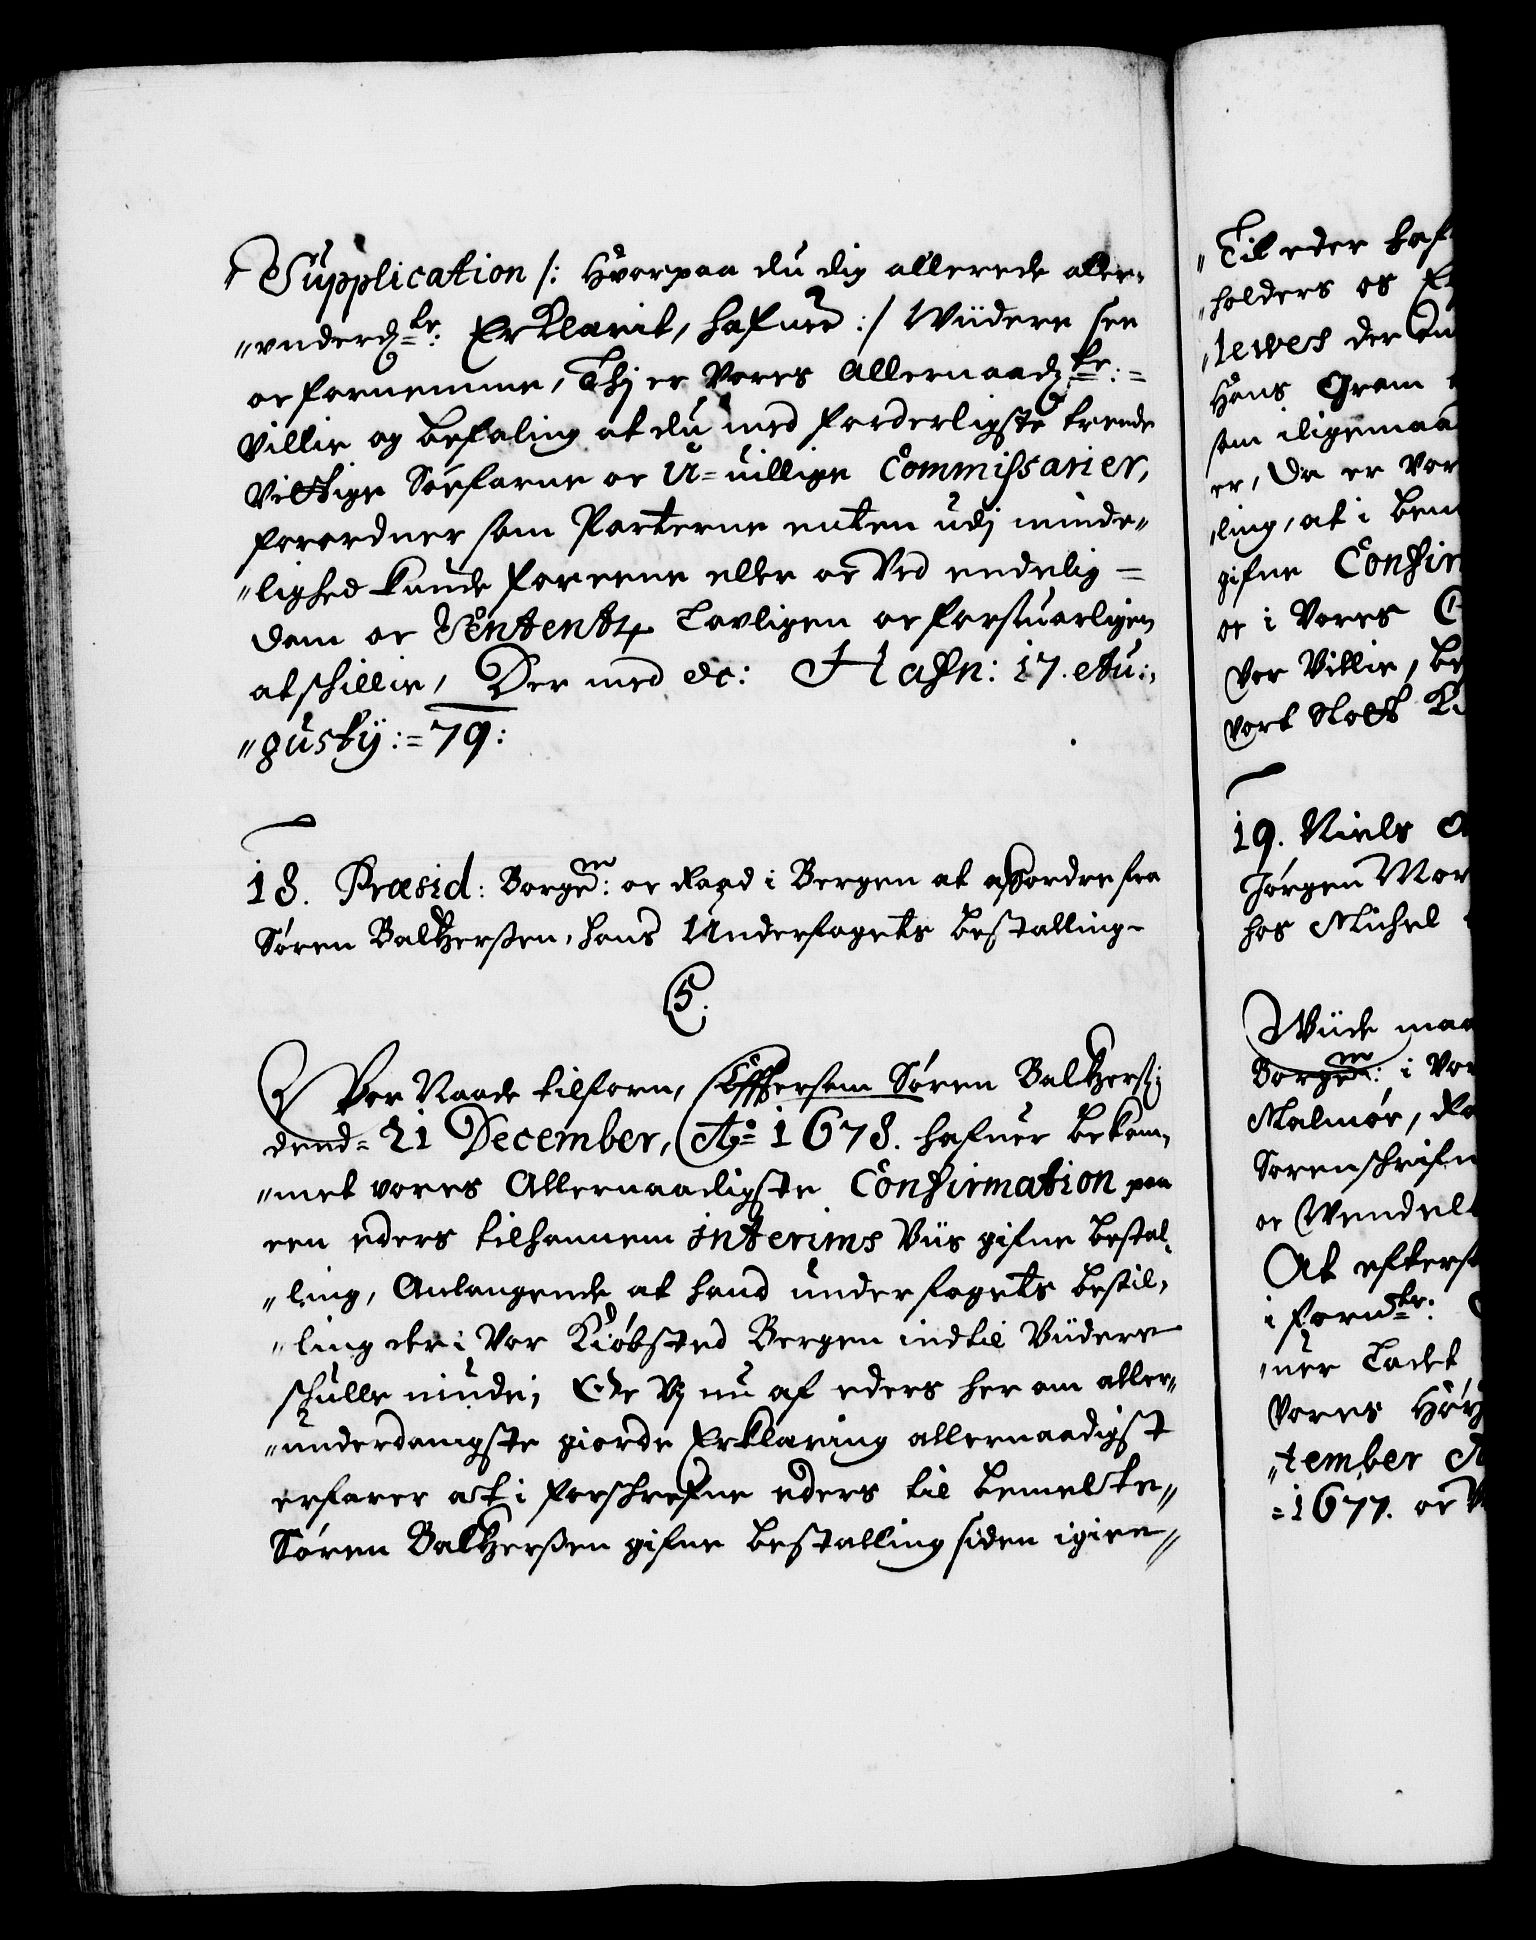 Supplication /: Hvorpaa du dig allerede aller-
"underd:te: Erklærit, hafuer :/ Widere see
oc fornemme, Thj er Vores Allernaad:te:=
Villie og befaling at du med forderligste trende
Vittige Søefarne oc U=uillige Commissarier,
forordner som Parterne enten udj minde"
"lighed kunde foreene eller oc Ved endelig=
dom oc Sententz Lovligen oc forsuarligen
atschillie, Der med &c: Hafn: 17. Au:,
"gustij:=79:
18. Præsid: Borgem: oc Raad i Bergen at affordre fra
Søren Baltzerssen, hans Underfogets bestalling-
C5.
Vor Naade tilforn, Effersom Søren Baltzerss:
dend= 21 December, Ao= 1678. hafuer bekom,
"met vores Allernaadigste Confirmation paa
een eders tilhannem interims Viis gifne bestal,
"ling, Anlangende at hand underfogets bestil,
"ling der i Vor Kiøbsted Bergen indtil Viidere
schulle niude; Ode Vj nu af eders her om aller"
"underdanigste giorde Erklæring allernaadigst
erfarer at i forschrefne eders til bemelte"
Søren Baltzerssen gifne bestalling siden igien"
"Til eder haf
"holders os
"lewes der
Hans Gram
som iligemaa
er, Da er Vor
"ling, at i bem
gifne Confir
oc i Vores
Vor Villie, be
Vort Slott
19. Niels
Jørgen Mor
hos Michel
Wiide maa
Borgem: i Vor
Malmøe, Ra
Sorenschrifu
oc Wendel
At efters
i fornte:
"ner Ladet
Vores Høy
"tember
=1677. oc